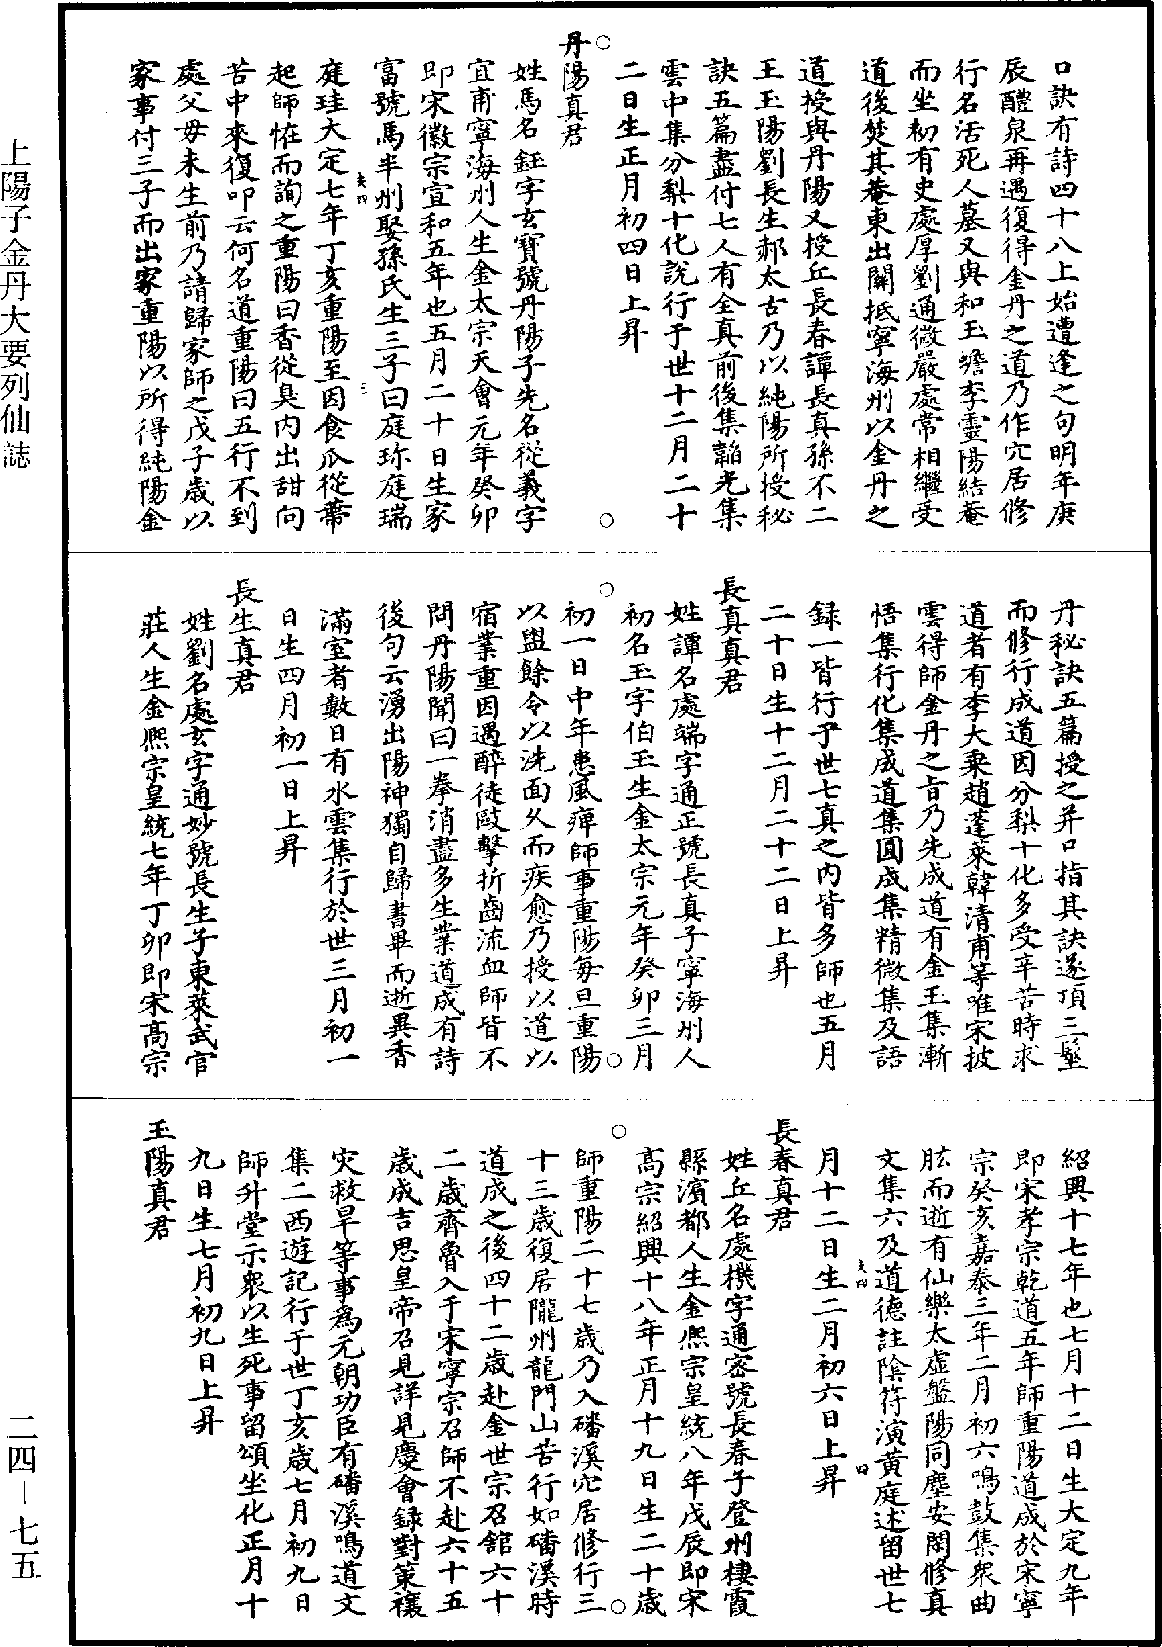 口訣有詩四十八上始遭逢之句明年庚
辰醴泉再遇復得金丹之道乃作穴居修
行名活死人墓又與和玉蟾李靈陽結菴
而坐初有史處厚劉通微嚴處常相繼受
道後焚其菴東出關抵寧海州以金丹之
道授與丹陽又授丘長春譚長真孫不二
王玉陽劉長生郝太古乃以純陽所授秘
訣五篇盡付七人有全真前後集韜光集
雲中集分梨十化說行于世十二月二十
二日生正月初四日上昇
丹陽真君
姓馬名鈺字玄寶號丹陽子先名從義字
宜甫寧海州人生金太宗天會元年癸卯
即宋徽宗宣和五年也五月二十日生家
富號馬半州娶孫氏生三子曰庭珍庭瑞
庭珪大定七年丁亥重陽至因食瓜從蔕
起師恠而詢之重陽曰香從臭內出甜向
苦中來復叩云何名道重陽曰五行不到
處父母未生前乃請歸家師之戊子歲以
家事付三子而出家重陽以所得純陽金
丹秘訣五篇授之并口指其訣遂頂三髽
而修行成道因分梨十化多受辛苦時求
道者有李大乘趙蓬萊韓清甫等唯宋披
雲得師金丹之旨乃先成道有金玉集漸
悟集行化集成道集圓成集精微集及語
録一皆行于世七真之內皆多師也五月
二十日生十二月二十二日上昇
長真真君
姓譚名處端字通正號長真子寧海州人
初名玉字伯玉生金太宗元年癸卯三月
初一日中年患風痺師事重陽每旦重陽
以盥餘令以洗面久而疾愈乃授以道以
宿業重因遇醉徒毆擊折齒流血師皆不
問丹陽聞曰一拳消盡多生業道成有詩
後句云湧出陽神獨自歸書畢而逝異香
滿室者數日有水雲集行於世三月初一
日生四月初一日上昇
長生真君
姓劉名處玄字通妙號長生子東萊武官
莊人生金熈宗皇統七年丁卯即宋高宗
紹興十七年也七月十二日生大定九年
即宋孝宗乾道五年師重陽道成於宋寧
宗癸亥嘉泰三年二月初六鳴鼓集衆曲
肱而逝有仙樂太虛盤陽同塵安閑修真
文集六及道德註陰符演黃庭述留世七
月十二日生二月初六日上昇
長春真君
姓丘名處機字通密號長春子登州棲霞
縣濱都人生金熈宗皇統八年戊辰即宋
高宗紹興十八年正月十九日生二十歲
師重陽二十七歲乃入磻溪穴居修行三
十三歲復居隴州龍門山苦行如磻溪時
道成之後四十二歲赴金世宗召舘六十
二歲齊魯入于宋寧宗召師不赴六十五
歲成吉思皇帝召見詳見慶會録對策禳
灾救旱等事爲元朝功臣有磻溪鳴道文
集二西遊記行于世丁亥歲七月初九日
師升堂示衆以生死事留頌坐化正月十
九日生七月初九日上昇
玉陽真君
上陽子金丹大要列仙誌
二四－七五